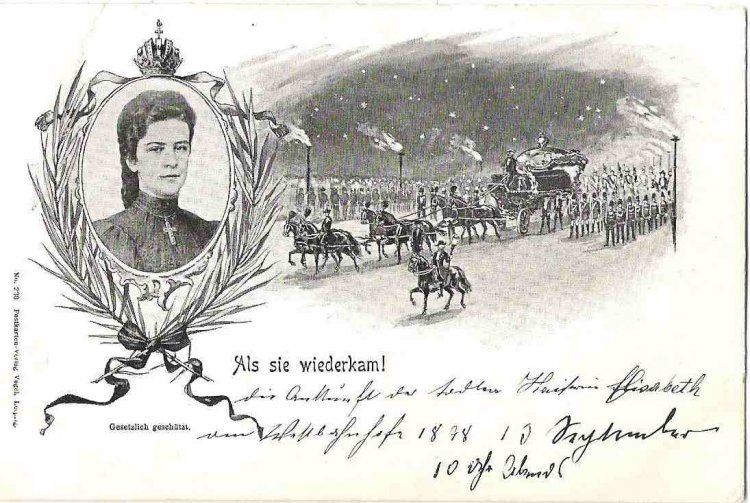 Als sie wiederkam!
die Ankunft der todten Kaiserin Elisabeth
am Westbahnhofe 1898 13 September
10 Uhr Abends
Gesetzlich geschützt.
No. Postkarten-Verlag Vogel, Leipzig.